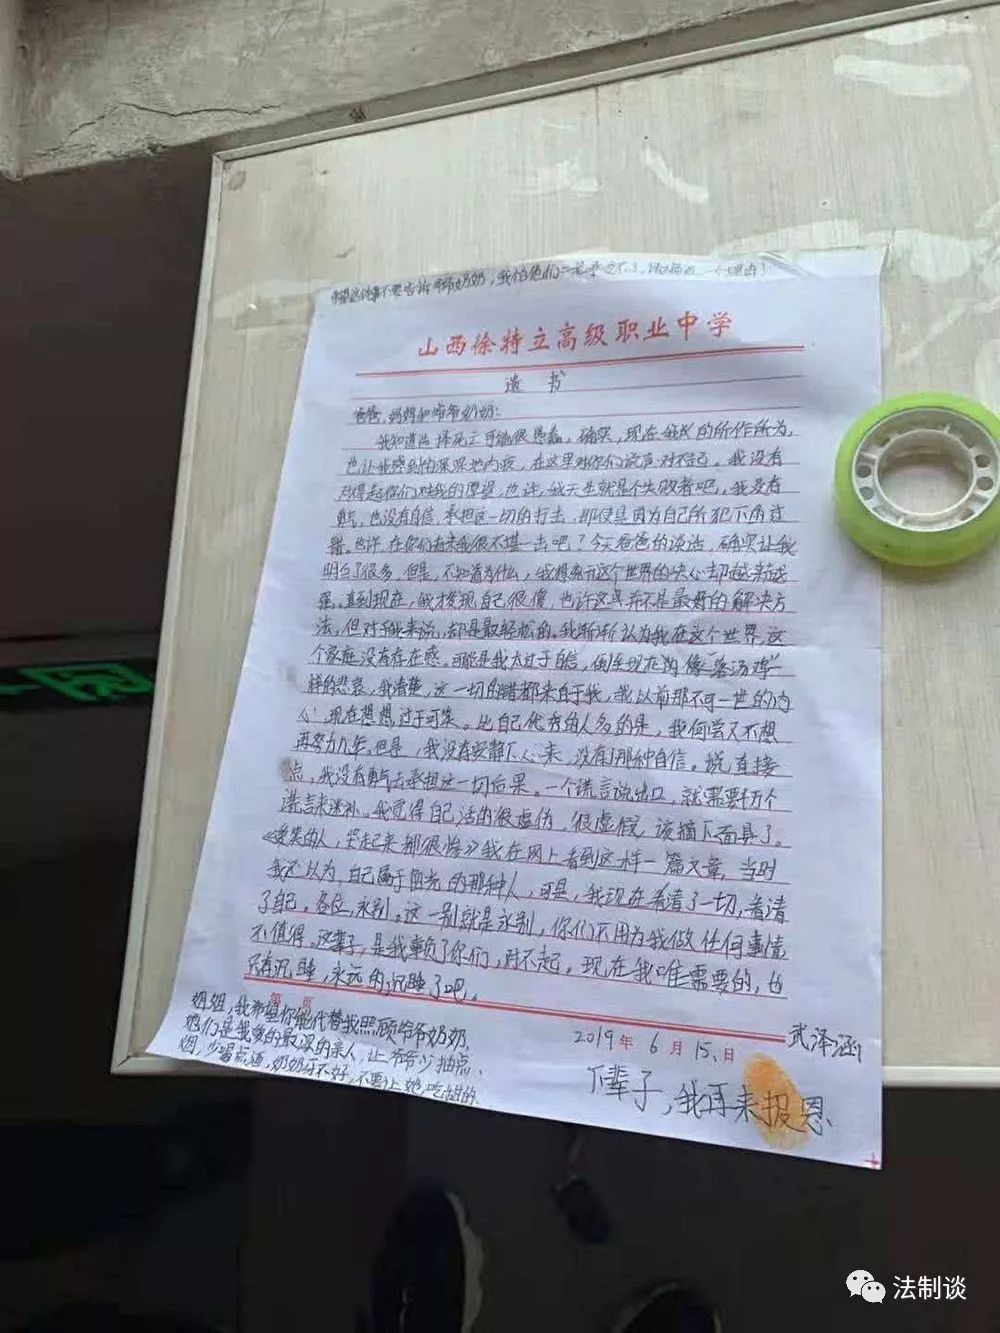 希望这件事不要告诉爷爷奶奶，我怕他们
山西徐特立高级职业中学
遗书
爸爸，妈妈和爷爷奶奶：
我知道选择死亡可能很愚蠢，确实，现在我的所作所为，
也让我感到的深深地内疚，在这里对你们说声，对不起。我没有
对得起你们对我的厚望，也许，我天生就是个失败者吧，我没有
勇气，也没有自信，承担这一切的打击，即使是因为自己所犯下的过
错。也许，在你们看来我很不堪一击吧？今天爸爸的谈话，确实让我
明白了很多，但是，不知道为什么，我想离开这个世界的决心却越来越
强，直到现在，我才发现自己很傻，也许这并不是最好的解决方
法，但对于我来说，却是最轻松的。我渐渐认为我在这个世界，这
个家庭没有存在感。可能是我太过于自信，倒至现在的像"落汤鸡"一
样的悲哀，我清楚，这一切的错都来自于我，我以前那不可一世的内
心，现在想想过于可笑。比自己优秀的人多的是，我何尝又不想
再努力几年，但是，我没有安静下心来，没有了那种自信。说直接
点，我没有勇气去承担这一切后果。一个谎言说出口，就需要千万个
谎言来弥补，我觉得自己活的很虚伪，很虚假，该摘下面具了。
《爱笑的人，哭起来都很惨》我在网上看到这样一篇文章，当时
我还以为，自己属于阳光的那种人，可是，我现在看清了一切，看清
了自己。各位，永别。这一别就是永别，你们不用为我做任何事情，
不值得。这辈子，是我辜负了你们，对不起。现在我唯一需要的，也
只有沉睡，永远的沉睡了吧。
第 页
2019年6月15日
武泽涵
姐姐，我希望你能代替我照顾爷爷奶奶，
他们是我爱的最深的亲人，让爷爷少抽点
烟，少喝点酒，奶奶身不好，不要让她吃甜的。
下辈子，我再来报恩。
法制谈